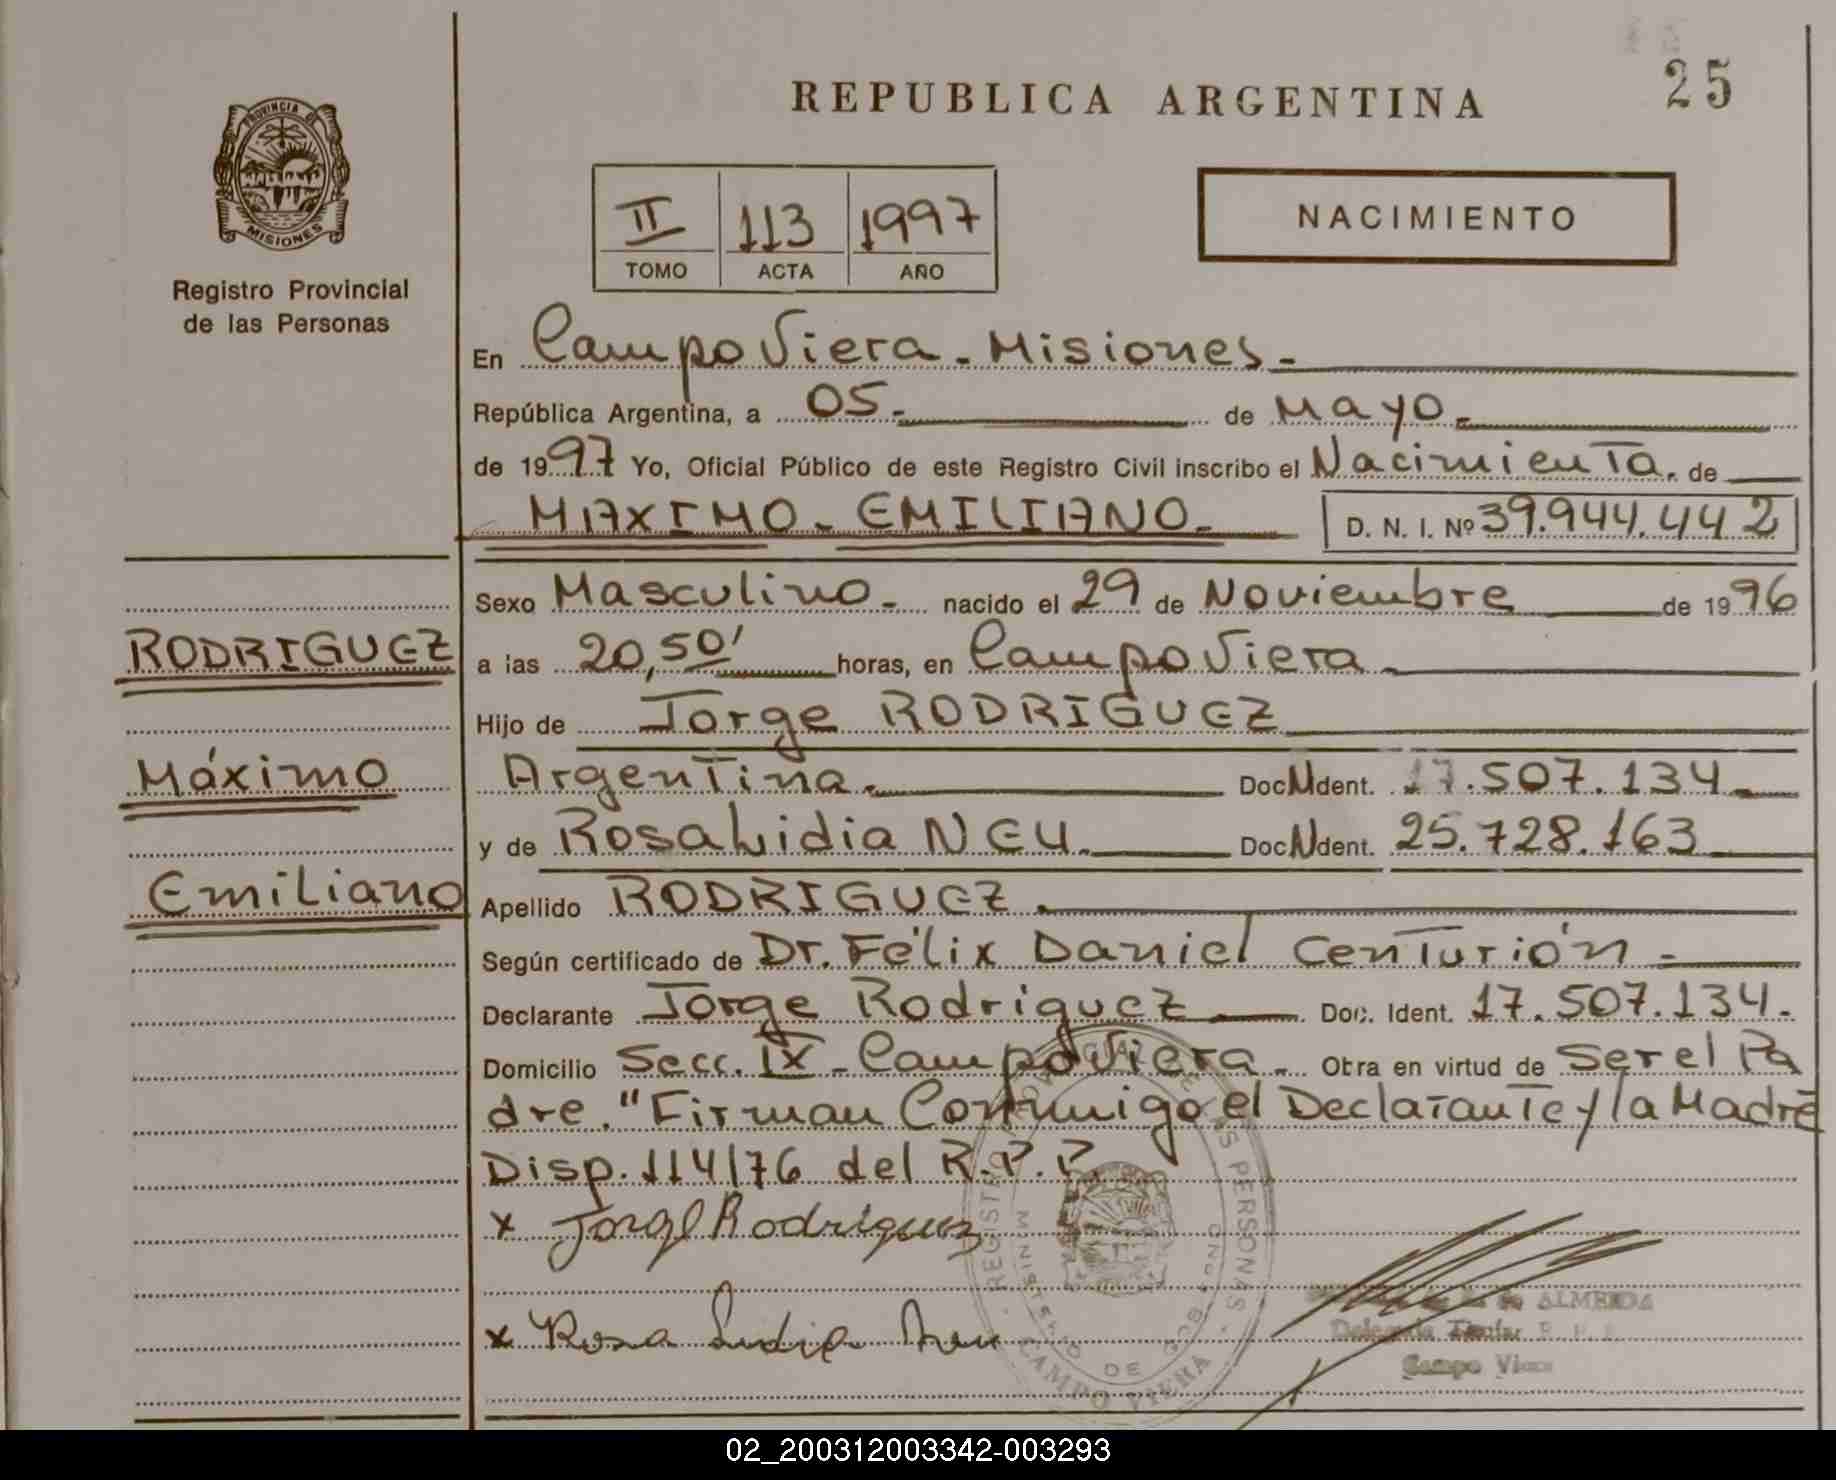 25
REPUBLICA ARGENTINA
PROVINCIA DE
MISIONES
Registro Provincial
de las Personas
II 113 1997
TOMO ACTA AÑO
NACIMIENTO
En Campo Viera - Misiones -
República Argentina, a 05 - de Mayo -
de 1997 Yo, Oficial Público de este Registro Civil inscribo el Nacimiento. de
MAXIMO - EMILIANO - D. N. I. Nº 39.944.442
Sexo Masculino - nacido el 29 de Noviembre de 1996
RODRIGUEZ
a las 20,50' horas, en Campo Viera -
Hijo de Jorge RODRIGUEZ
Máximo
Argentina. Doc. Ident. 17.507.134 -
y de Rosa Lidia NEU. Doc. Ident. 25.728.163
Emiliano
Apellido RODRIGUEZ.
Según certificado de Dr. Félix Daniel Centurión -
Declarante Jorge Rodriguez Doc. Ident. 17.507.134.
Domicilio Secc. IX - Campo Viera - Obra en virtud de Ser el Pa
dre. "Firman Conmigo el Declarante y la Madre
Disp. 114/76 del R.P.P.
x Jorge Rodriguez
x Rosa Lidia Neu
REGISTRO PROVINCIAL DE LAS PERSONAS
MINISTERIO DE GOBIERNO
CAMPO VIERA
de ALMEIDA
Delegada Titular R. P. P.
Campo Viera
02_200312003342-003293